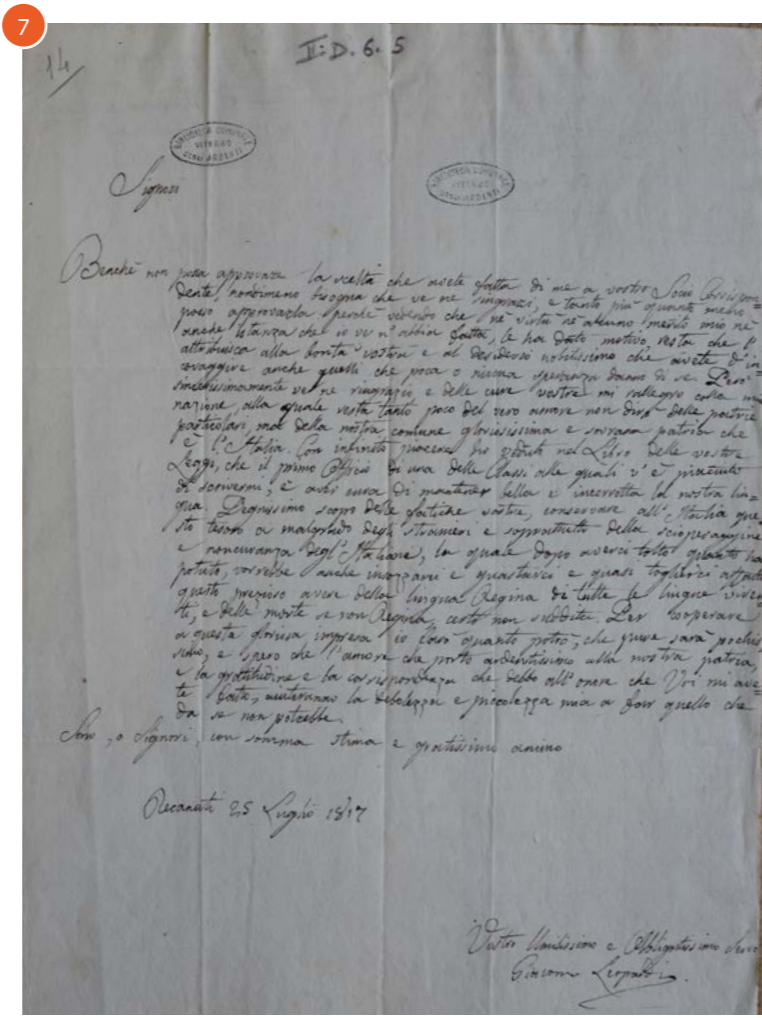 7
14
II: D. 6. 5
BIBLIOTECA COMUNALE
VITERBO
DEGLI ARDENTI
BIBLIOTECA COMUNALE
VITERBO
DEGLI ARDENTI
Signori
Benchè non possa approvare la scelta che avete fatta di me a vostro Socio Corrispon=
dente, nondimeno bisogna che ve ne ringrazi, e tanto più quanto meno
posso approvarla perchè vedendo che nè virtù nè alcuno merito mio nè
anche istanza che io ve n'abbia fatta, le ha dato motivo, resta che l'
attribuisca alla bontà vostra e al desiderio nobilissimo che avete d'in=
coraggire anche quelli che poca o niuna speranza danno di se. Però
sincerissimamente ve ne ringrazio, e delle cure vostre mi rallegro colla mia
nazione, alla quale resta tanto poco del vero amore non dirò delle patrie
particolari, ma della nostra comune gloriosissima e sovrana patria che
è l'Italia. Con infinito piacere ho veduto nel Libro delle vostre
Leggi, che il primo Officio di una delle Classi alle quali v'è piaciuto
di scrivermi, è aver cura di mantener bella e incorrotta la nostra lin=
gua. Degnissimo scopo delle fatiche vostre, conservare all'Italia que=
sto tesoro a malgrado degli stranieri e soprattutto della scioperaggine
e noncuranza degl'Italiani, la quale dopo averci tolto quanto ha
potuto, vorrebbe anche insozzarci e guastarci e quasi toglierci affatto
questo prezioso avere della lingua Regina di tutte le lingue viven=
ti, e delle morte se non Regina, certo non suddita. Per cooperare
a questa gloriosa impresa io farò quanto potrò, che pure sarà pochis=
simo, e spero che l'amore che porto ardentissimo alla nostra patria,
e la gratitudine e la corrispondenza che debbo all'onore che Voi mi ave=
te fatto, aiuteranno la debolezza e piccolezza mia a far quello che
da se non potrebbe.
Sono, o Signori, con somma stima e gratissimo animo
Recanati 25 Luglio 1817
Vostro Umilissimo e Obbligatissimo Servo
Giacomo Leopardi.